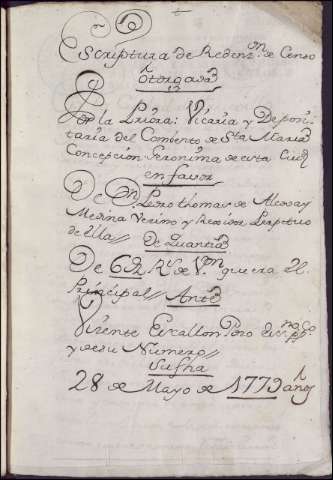 Escriptura de Redenzⁿ. de Censo
Otorgada
Por la Priora: Vicaria y Deposi=
taria del Combento de Sta. Maria
Concepcion Geronima de esta Ciud.
en favor
De Dⁿ. Pedro thomas de Alcozay
Medina Vecino y Rexidor Perpetuo
de ella//
De Quantia
De 62 Rs. de Vⁿ. que era el
Principal//
Ante
Vicente
y de su Numero//
Su fha
28 de Mayo de 1773 años